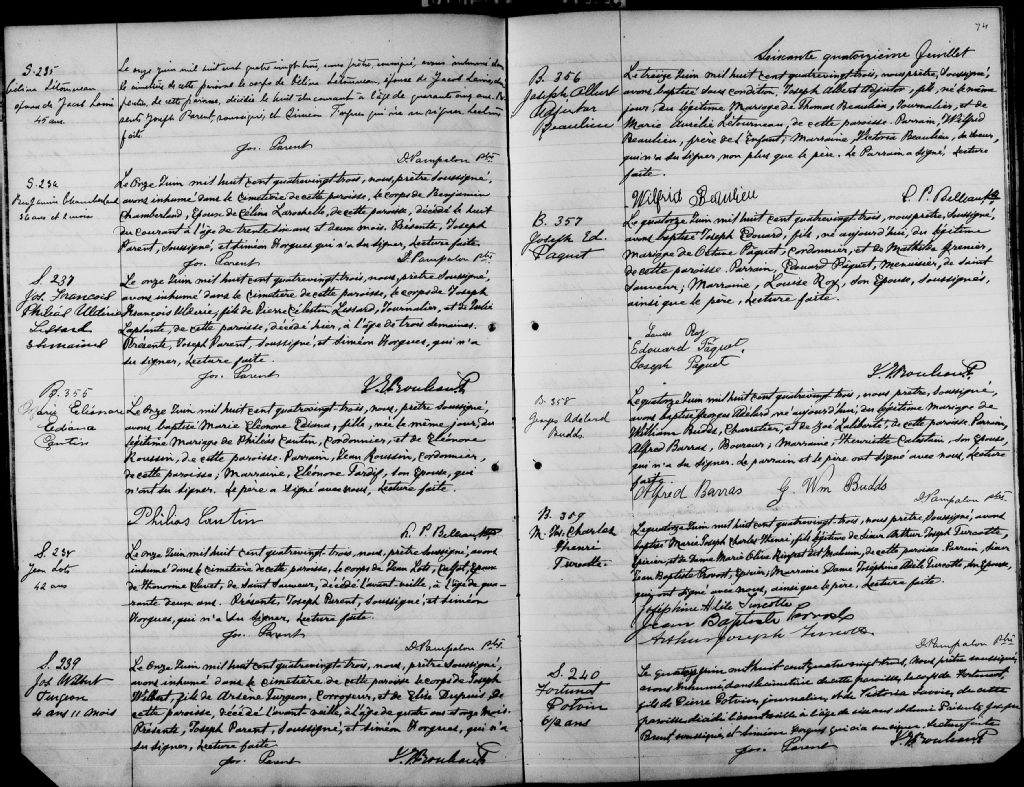 S. 235
épouse de Jacob
45 ans
Le onze juin mil huit cent quatre vingt trois, nous prêtre, soussigné, avons inhumé dans
le cimetière de cette paroisse le corps de Céline Létourneau, épouse de Jacob
de cette paroisse, décédée le huit du courant à l'âge de quarante cinq ans.
Joseph Parent, soussigné, et Siméon qui n'a su signer, Lecture
faite.
Jos. Parent
D. Pampalon Ptre
S. 236
Benjamin Chamberland
36 ans et 2 mois
Le onze Juin mil huit cent quatrevingt trois, nous, prêtre soussigné,
avons inhumé dans le cimetière de cette paroisse, le corps de Benjamin
Chamberland, Epoux de Célina Larochelle, de cette paroisse, décédé le huit
du courant à l'âge de trente six ans et deux mois. Présents, Joseph
Parent, Soussigné, et Siméon Horgues qui n'a su signer, Lecture faite.
Jos. Parent
D. Pampalon Ptre
S. 237
Jos. François
Lessard
3 semaines
Le onze Juin mil huit cent quatrevingt trois, nous, prêtre soussigné,
avons inhumé dans le cimetière de cette paroisse, le corps de Joseph
François fils de Pierre Célestin Lessard, Journalier, et de Julie
Laplante, de cette paroisse, décédé hier, à l'âge de trois semaines.
Présents, Joseph Parent, Soussigné, et Siméon Horgues, qui n'a
su signer, Lecture faite.
Jos. Parent
B. 355
Marie Eléonore
Ediana
Cantin
Le onze Juin mil huit cent quatrevingt trois, nous, prêtre, soussigné,
avons baptisé Marie Eléonore Ediana, fille, née le même jour, du
légitime Mariage de Philéas Cantin, Cordonnier, et de Eléonore
Roussin, de cette paroisse. Parrain, Jean Roussin, Cordonnier,
de cette paroisse; Marraine, Eléonore Tardif, son Epouse, qui
n'ont su signer. Le père a signé avec nous, Lecture faite.
Philias Cantin
L. P. Belleau Ptre
S. 238
Jean Loto
42 ans
Le onze Juin mil huit cent quatrevingt trois, nous, prêtre soussigné, avons
inhumé dans le cimetière de cette paroisse, le corps de Jean Loto, Epoux
de Honorine de Saint Sauveur, décédé l'avant veille, à l'âge de qua-
rante deux ans. Présents, Joseph Parent, Soussigné, et Siméon
Horgues, qui n'a su signer, Lecture faite.
Jos. Parent
D. Pampalon Ptre
S. 239
Jos Wilbert
Turgeon
4 ans 11 mois
Le onze Juin mil huit cent quatrevingt trois, nous, prêtre soussigné,
avons inhumé dans le cimetière de cette paroisse le corps de Joseph
Wilbert, fils de Arsène Turgeon, Corroyeur, et de Eliza Dupuis, de
cette paroisse, décédé l'avant veille, à l'âge de quatre ans et onze mois.
Présents, Joseph Parent, Soussigné, et Siméon Horgues, qui n'a
su signer, Lecture faite.
Jos. Parent
74
Soixante quatorzième feuillet
B. 356
Joseph Albert
Adjutor
Beaulieu
Le treize Juin mil huit cent quatrevingt trois, nous prêtre, soussigné,
avons baptisé sous condition, Joseph Albert Adjutor, fils, né le même
jour, du légitime Mariage de Thomas Beaulieu, Journalier, et de
Marie Aurélie Létourneau, de cette paroisse. Parrain, Wilfred
Beaulieu, frère de l'Enfant; Marraine, Victoria Beaulieu, sa soeur,
qui n'a su signer, non plus que le père. Le Parrain a signé, Lecture
faite.
Wilfrid Beaulieu
L. P. Belleau Ptre
B. 357
Joseph Ed.
Paquet
Le quatorze Juin mil huit cent quatrevingt trois, nous prêtre, soussigné,
avons baptisé Joseph Edouard, fils, né aujourd'hui, du légitime
mariage de Octave Paquet, Cordonnier, et de Mathilde Grenier,
de cette paroisse. Parrain, Edouard Paquet, Menuisier, de saint
Sauveur; Marraine, Louise Roy, son Epouse, soussignés,
ainsi que le père, Lecture faite.
Louise Roy
Edouard Paquet
Joseph Paquet
B. 358
Georges Adelard
Budds
Le quatorze Juin mil huit cent quatrevingt trois, nous, prêtre, soussigné,
avons baptisé Georges Adelard, né aujourd'hui, du légitime mariage de
William Budds, Charretier, et de Zoé Laliberté, de cette paroisse. Parrain,
Alfred Barras, Bourreur; Marraine, Henriette son Epouse,
qui n'a su signer. Le parrain et le père ont signé avec nous, Lecture
faite.
Alfred Barras G. Wm Budds
D. Pampalon ptre
B. 359
M. Jos. Charles
Henri
Turcotte
Le quatorze Juin mil huit cent quatrevingt trois, nous prêtre, Soussigné, avons
baptisé Marie Joseph Charles Henri, fils légitime de Sieur Arthur Joseph Turcotte,
Epicier, et de Dame Marie de cette paroisse. Parrain, Sieur
Jean Baptiste Provost, Epicier; Marraine Dame Joséphine Adile Turcotte, son Epouse,
qui ont signé avec nous, ainsi que le père, Lecture faite.
Joséphine Adile Turcotte
Jean Baptiste
Arthur Joseph Turcotte
D. Pampalon Ptre
S. 240
Fortunat
Potvin
6½ ans
Le quatorze juin mil huit cent quatrevingt trois, nous prêtre soussigné,
avons inhumé dans le cimetière de cette paroisse, le corps de Fortunat,
fils de Pierre Potvin, journalier, et de Victoria Savoie, de cette
paroisse décédé l'avant veille à l'âge de six ans et demi. Présents, Joseph
Parent, soussigné, et Siméon Horgues qui n'a su signer. Lecture faite
Jos. Parent